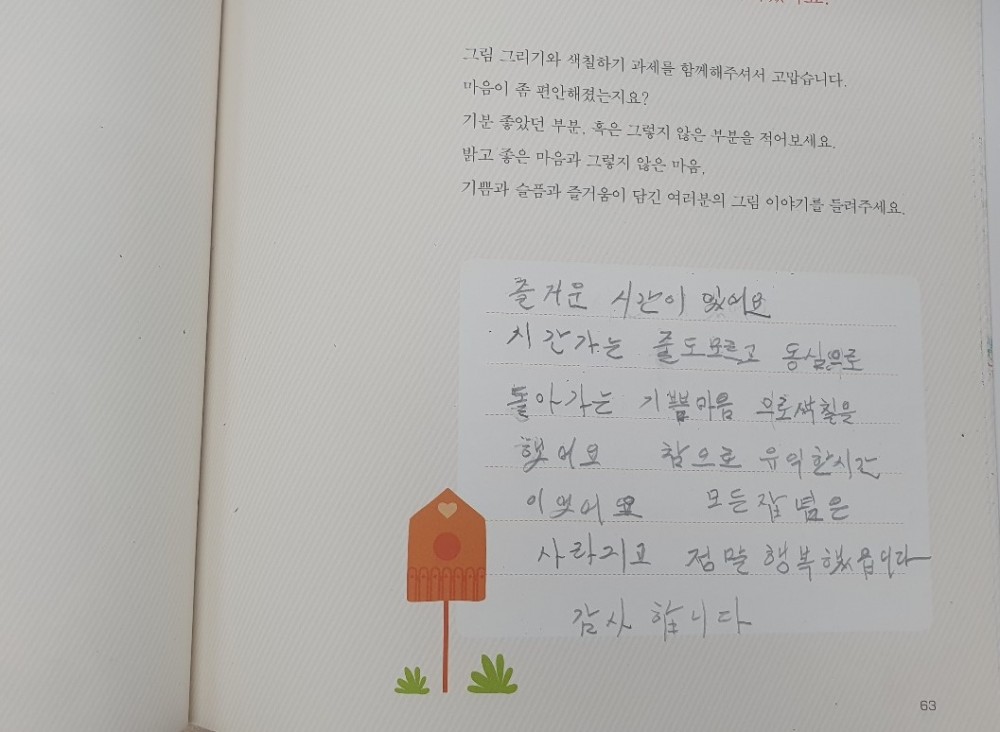 그림 그리기와 색칠하기 과제를 함께해주셔서 고맙습니다.
마음이 좀 편안해졌는지요?
기분 좋았던 부분, 혹은 그렇지 않은 부분을 적어보세요.
밝고 좋은 마음과 그렇지 않은 마음,
기쁨과 슬픔과 즐거움이 담긴 여러분의 그림 이야기를 들려주세요.
즐거운 시간이 있어요
시간가는 줄도모르고 동심으로
돌아가는 기쁨마음 으로색칠을
했어요 참으로 유익한시간
이엇어요 모든잡념은
사라지고 정말행복했읍니다
감사 합니다
63